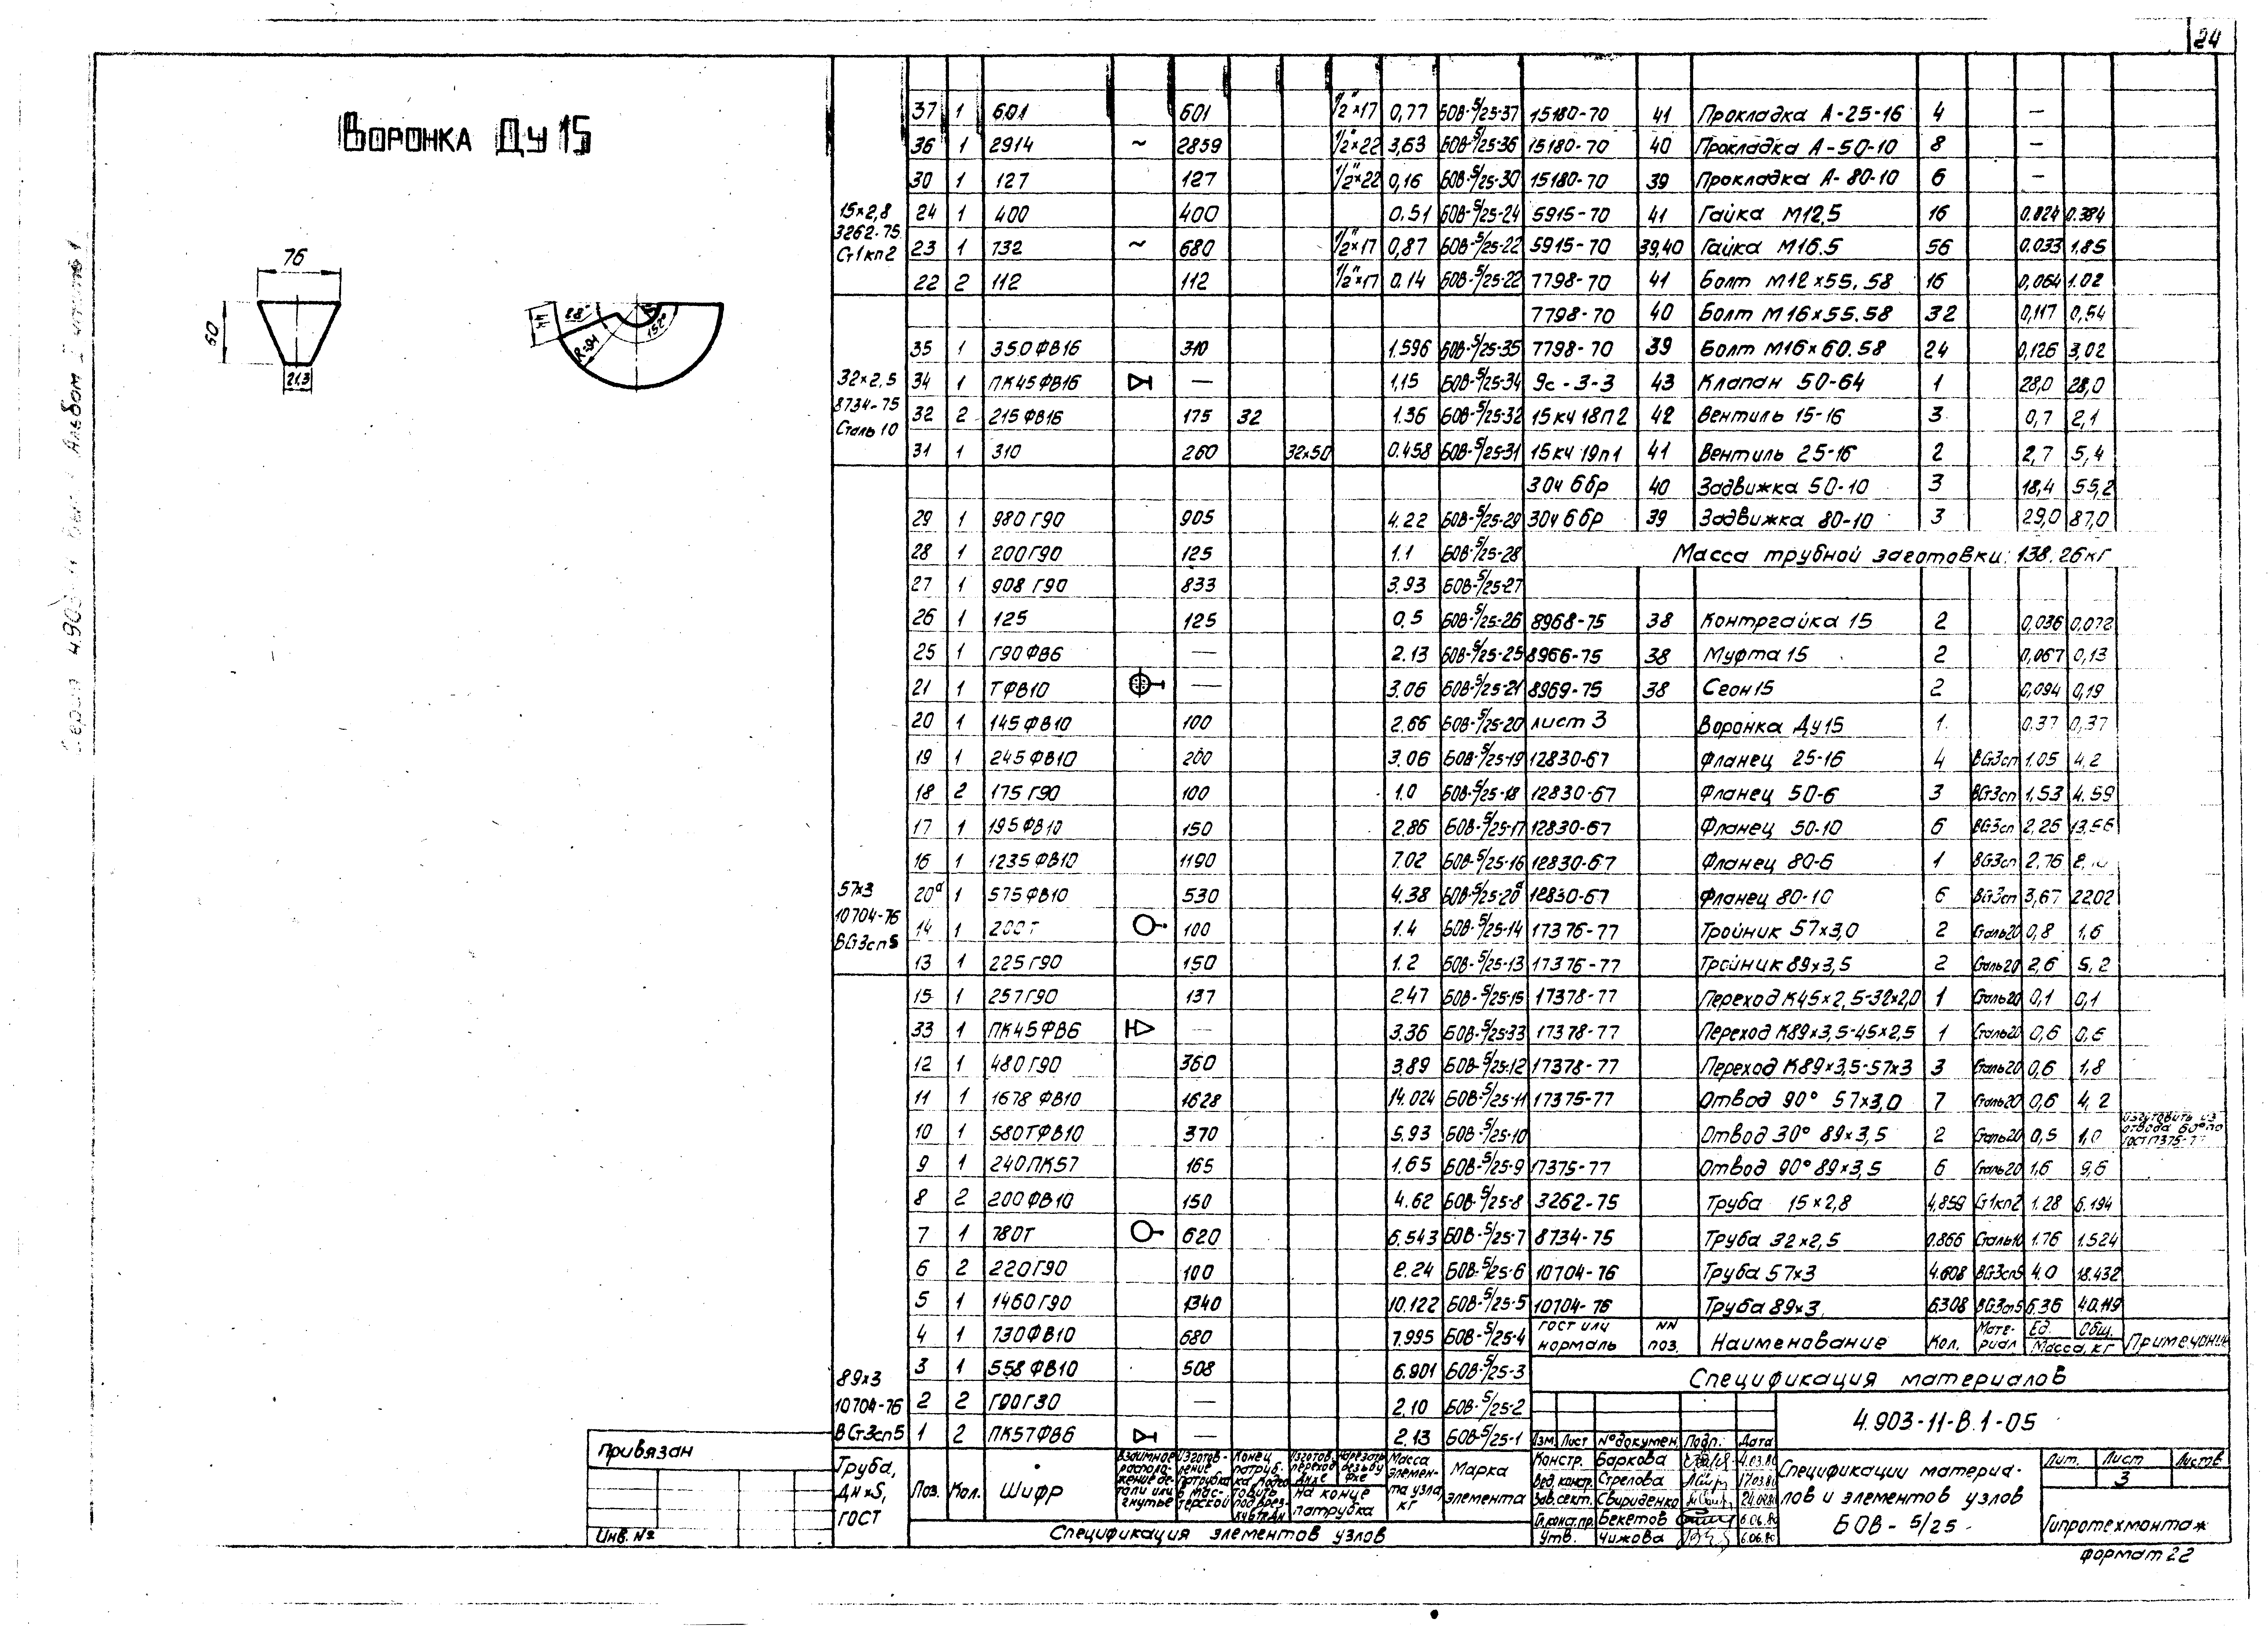 24
Воронка Ду 15
76
60
21.3
44
28°
R=91
152°
37 1 601 601 1/2"×17 0,77 БОВ-5/25-37 15180-70 41 Прокладка А-25-16 4 —
36 1 2914 ~ 2859 1/2"×22 3,63 БОВ-5/25-36 15180-70 40 Прокладка А-50-10 8 —
30 1 127 127 1/2"×22 0,16 БОВ-5/25-30 15180-70 39 Прокладка А-80-10 6 —
15×2,8
3262-75
Ст1кп2
24 1 400 400 0.51 БОВ-5/25-24 5915-70 41 Гайка М12,5 16 0.024 0.384
23 1 732 ~ 680 1/2"×17 0,87 БОВ-5/25-22 5915-70 39,40 Гайка М16.5 56 0.033 1.85
22 2 112 112 1/2"×17 0.14 БОВ-5/25-22 7798-70 41 Болт М12×55.58 16 0,064 1.02
7798-70 40 Болт М16×55.58 32 0,117 0,54
35 1 350ФВ16 310 1.596 БОВ-5/25-35 7798-70 39 Болт М16×60.58 24 0,126 3,02
32×2,5
8734-75
Сталь 10
34 1 ПК45ФВ16 — 1,15 БОВ-5/25-34 9с-3-3 43 Клапан 50-64 1 28,0 28,0
32 2 215ФВ16 175 32 1.36 БОВ-5/25-32 15кч18П2 42 Вентиль 15-16 3 0,7 2,1
31 1 310 260 32×50 0.458 БОВ-5/25-31 15кч19п1 41 Вентиль 25-16 2 2,7 5,4
30ч6бр 40 Задвижка 50-10 3 18,4 55,2
29 1 980Г90 905 4.22 БОВ-5/25-29 30ч6бр 39 Задвижка 80-10 3 29,0 87,0
28 1 200Г90 125 1.1 БОВ-5/25-28 Масса трубной заготовки: 138.26кг
27 1 908Г90 833 3.93 БОВ-5/25-27
26 1 125 125 0,5 БОВ-5/25-26 8968-75 38 Контргайка 15 2 0,036 0.072
25 1 Г90ФВ6 — 2.13 БОВ-5/25-25 8966-75 38 Муфта 15 2 0,067 0,13
21 1 ТФВ10 — 3.06 БОВ-5/25-21 8969-75 38 Сгон 15 2 0,094 0,19
20 1 145ФВ10 100 2.66 БОВ-5/25-20 лист 3 Воронка Ду15 1. 0.37 0,37
19 1 245ФВ10 200 3.06 БОВ-5/25-19 12830-67 Фланец 25-16 4 ВСт3сп 1.05 4.2
18 2 175Г90 100 1.0 БОВ-5/25-18 12830-67 Фланец 50-6 3 ВСт3сп 1,53 4.59
17 1 195ФВ10 150 2.86 БОВ-5/25-17 12830-67 Фланец 50-10 6 ВСт3сп 2,26 13,56
16 1 1235ФВ10 1190 7.02 БОВ-5/25-16 12830-67 Фланец 80-6 1 ВСт3сп 2.76
57×3
10704-76
ВСт3сп5
20а 1 575ФВ10 530 4.38 БОВ-5/25-20а 12830-67 Фланец 80-10 6 ВСт3сп 3,67 22.02
14 1 200Т 100 1.4 БОВ-5/25-14 17376-77 Тройник 57×3,0 2 Сталь20 0,8 1,6
13 1 225Г90 150 1.2 БОВ-5/25-13 17376-77 Тройник 89×3,5 2 Сталь20 2,6 5,2
15 1 257Г90 137 2.47 БОВ-5/25-15 17378-77 Переход К45×2,5-32×2,0 1 Сталь20 0,1 0,1
33 1 ПК45ФВ6 — 3.36 БОВ-5/25-33 17378-77 Переход К89×3,5-45×2,5 1 Сталь20 0,6 0,6
12 1 480Г90 360 3.89 БОВ-5/25-12 17378-77 Переход К89×3,5-57×3 3 Сталь20 0,6 1,8
11 1 1678ФВ10 1628 14.024 БОВ-5/25-11 17375-77 Отвод 90° 57×3,0 7 Сталь20 0,6 4,2
10 1 580ТФВ10 370 5.93 БОВ-5/25-10 Отвод 30° 89×3,5 2 Сталь20 0,5 1,0 Изготовить из отвода 60° по ГОСТ 17375-77
9 1 240ПК57 165 1.65 БОВ-5/25-9 17375-77 Отвод 90° 89×3,5 6 Сталь20 1,6 9,6
8 2 200ФВ10 150 4.62 БОВ-5/25-8 3262-75 Труба 15×2,8 4,859 Ст1кп2 1.28 6.194
7 1 780Т 620 6.543 БОВ-5/25-7 8734-75 Труба 32×2,5 0.866 Сталь10 1.76 1.524
6 2 220Г90 100 2.24 БОВ-5/25-6 10704-76 Труба 57×3 4.608 ВСт3сп5 4.0 18.432
5 1 1460Г90 1340 10.122 БОВ-5/25-5 10704-76 Труба 89×3 6.308 ВСт3сп5 6.36 40.119
4 1 730ФВ10 680 7.995 БОВ-5/25-4 ГОСТ или нормаль NN поз. Наименование Кол. Материал Ед. Общ. Масса, кг Примечание
89×3
10704-76
ВСт3сп5
3 1 558ФВ10 508 6.901 БОВ-5/25-3
2 2 Г90Г30 — 2.10 БОВ-5/25-2
1 2 ПК57ФВ6 — 2.13 БОВ-5/25-1
Труба, Дн×S, ГОСТ
Поз. Кол. Шифр
Взаимное расположение детали или гнутье
Изготовление патрубка в мастерской
Конец патрубка подготовить под врезку в т.Дн
Изготов. переход Дн×Д Нарезать резьбу
на конце патрубка
Масса элемента узла, кг
Марка элемента
Спецификация элементов узлов
Спецификация материалов
4.903-11-В.1-05
Изм. Лист №докумен. Подп. Дата
Констр. Баркова 4.03.80
Вед. констр. Стрелова 17.03.80
Зав.сект. Свириденко 24.04.80
Гл.констр. Бекетов 6.06.80
Утв. Чижова 6.06.80
Спецификации материалов и элементов узлов
БОВ-5/25
Лит. Лист Листов
3
Гипротехмонтаж
формат 22
Привязан
Инв. №